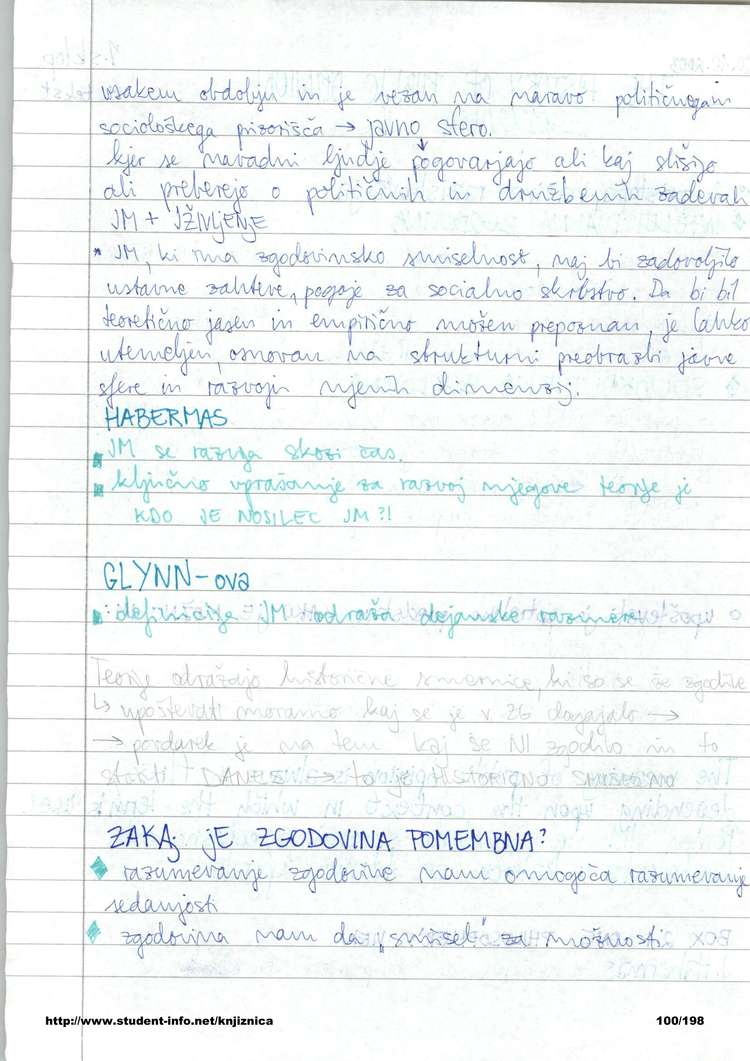 vsakem obdobju in je vezan na naravo političnega in
sociološkega prizorišča → javno sfero.
kjer se navadni ljudje pogovarjajo ali kaj slišijo
ali preberejo o političnih in družbenih zadevah
JM + JŽIVLJENJE
* JM, ki ima zgodovinsko smiselnost, naj bi zadovoljilo
ustavne zahteve, pogoje za socialno skrbstvo. Da bi bil
teoretično jasen in empirično možen prepoznan, je lahko
utemeljen, osnovan na strukturni preobrazbi javne
sfere in razvoju njenih dimenzij.
HABERMAS
JM se razvija skozi čas.
ključno vprašanje za razvoj njegove teorije je
KDO JE NOSILEC JM?!
GLYNN-ova
definicija JM odraža dejanske razmere
Teorije odražajo historične smernice, ki so se že zgodile
↳ upoštevati moramo kaj se je v ZG dogajalo →
→ poudarek je na tem kaj se NI zgodilo in to
DANES → to je HISTORIČNO SMISELNO
ZAKAJ JE ZGODOVINA POMEMBNA?
razumevanje zgodovine nam omogoča razumevanje
sedanjosti
zgodovina nam da „smisel" za možnosti
http://www.student-info.net/knjiznica 100/198